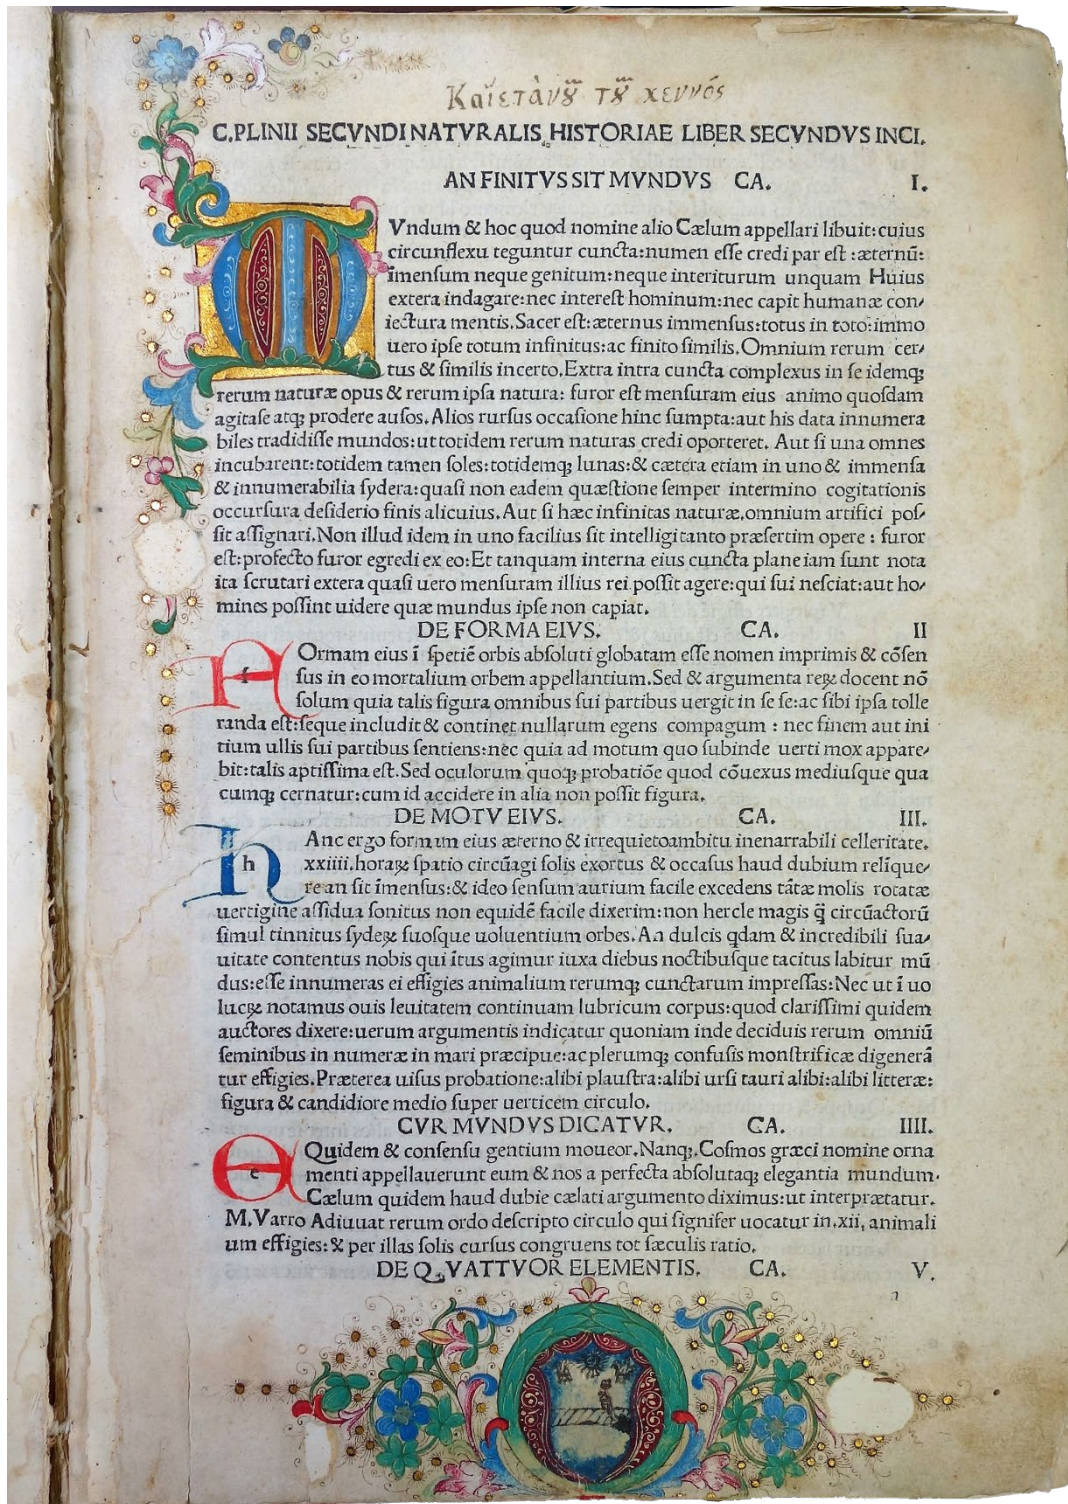 Καϊετάνου τοῦ χεννός
C.PLINII SECVNDI NATVRALIS HISTORIAE LIBER SECVNDVS INCI.
AN FINITVS SIT MVNDVS CA. I.
MVndum & hoc quod nomine alio Cælum appellari libuit:cuius
circunflexu teguntur cuncta:numen esse credi par est :æternū:
īmensum neque genitum:neque interiturum unquam Huius
extera indagare:nec interest hominum:nec capit humanæ con/
iectura mentis.Sacer est:æternus immensus:totus in toto:immo
uero ipse totum infinitus:ac finito similis.Omnium rerum cer/
tus & similis incerto.Extra intra cuncta complexus in se idemq;
rerum naturæ opus & rerum ipsa natura: furor est mensuram eius animo quosdam
agitase atq; prodere ausos.Alios rursus occasione hinc sumpta:aut his data innumera
biles tradidisse mundos:ut totidem rerum naturas credi oporteret. Aut si una omnes
incubarent:totidem tamen soles:totidemq; lunas:& cætera etiam in uno & immensa
& innumerabilia sydera:quasi non eadem quæstione semper intermino cogitationis
occursura desiderio finis alicuius.Aut si hæc infinitas naturæ.omnium artifici pos/
sit assignari.Non illud idem in uno facilius sit intelligi tanto præsertim opere : furor
est:profecto furor egredi ex eo:Et tanquam interna eius cuncta plane iam sunt nota
ita scrutari extera quasi uero mensuram illius rei possit agere:qui sui nesciat:aut ho/
mines possint uidere quæ mundus ipse non capiat.
DE FORMA EIVS. CA. II
f Ormam eius ī spetiē orbis absoluti globatam esse nomen imprimis & cōsen
sus in eo mortalium orbem appellantium.Sed & argumenta reꝝ docent nō
solum quia talis figura omnibus sui partibus uergit in se se:ac sibi ipsa tolle
randa est:seque includit & continet nullarum egens compagum : nec finem aut ini
tium ullis sui partibus sentiens:nec quia ad motum quo subinde uerti mox appare/
bit:talis aptissima est.Sed oculorum quoq; probatiōe quod cōuexus mediusque qua
cumq; cernatur:cum id accidere in alia non possit figura.
DE MOTV EIVS. CA. III.
h Anc ergo formam eius æterno & irrequieto ambitu inenarrabili celleritate.
xxiiii.horaꝝ spatio circūagi solis exortus & occasus haud dubium relīque/
re an sit īmensus:& ideo sensum aurium facile excedens tātæ molis rotatæ
uertigine assidua sonitus non equidē facile dixerim:non hercle magis q̄ circūactorū
simul tinnitus sydeꝝ suosque uoluentium orbes.An dulcis qdam & incredibili sua/
uitate contentus nobis qui ītus agimur iuxa diebus noctibusque tacitus labitur mū
dus:esse innumeras ei effigies animalium rerumq; cunctarum impressas:Nec ut ī uo
lucꝝ notamus ouis leuitatem continuam lubricum corpus:quod clarissimi quidem
auctores dixere:uerum argumentis indicatur quoniam inde deciduis rerum omniū
seminibus in numeræ in mari præcipue:ac plerumq; confusis monstrificæ digenerā
tur effigies.Præterea uisus probatione:alibi plaustra:alibi ursi tauri alibi:alibi litteræ:
figura & candidiore medio super uerticem circulo.
CVR MVNDVS DICATVR. CA. IIII.
e Quidem & consensu gentium moueor.Nanq;.Cosmos græci nomine orna
menti appellauerunt eum & nos a perfecta absolutaq; elegantia mundum.
Cælum quidem haud dubie cælati argumento diximus:ut interprætatur.
M.Varro Adiuuat rerum ordo descripto circulo qui signifer uocatur in.xii, animali
um effigies:& per illas solis cursus congruens tot sæculis ratio.
DE QVATTVOR ELEMENTIS. CA. V.